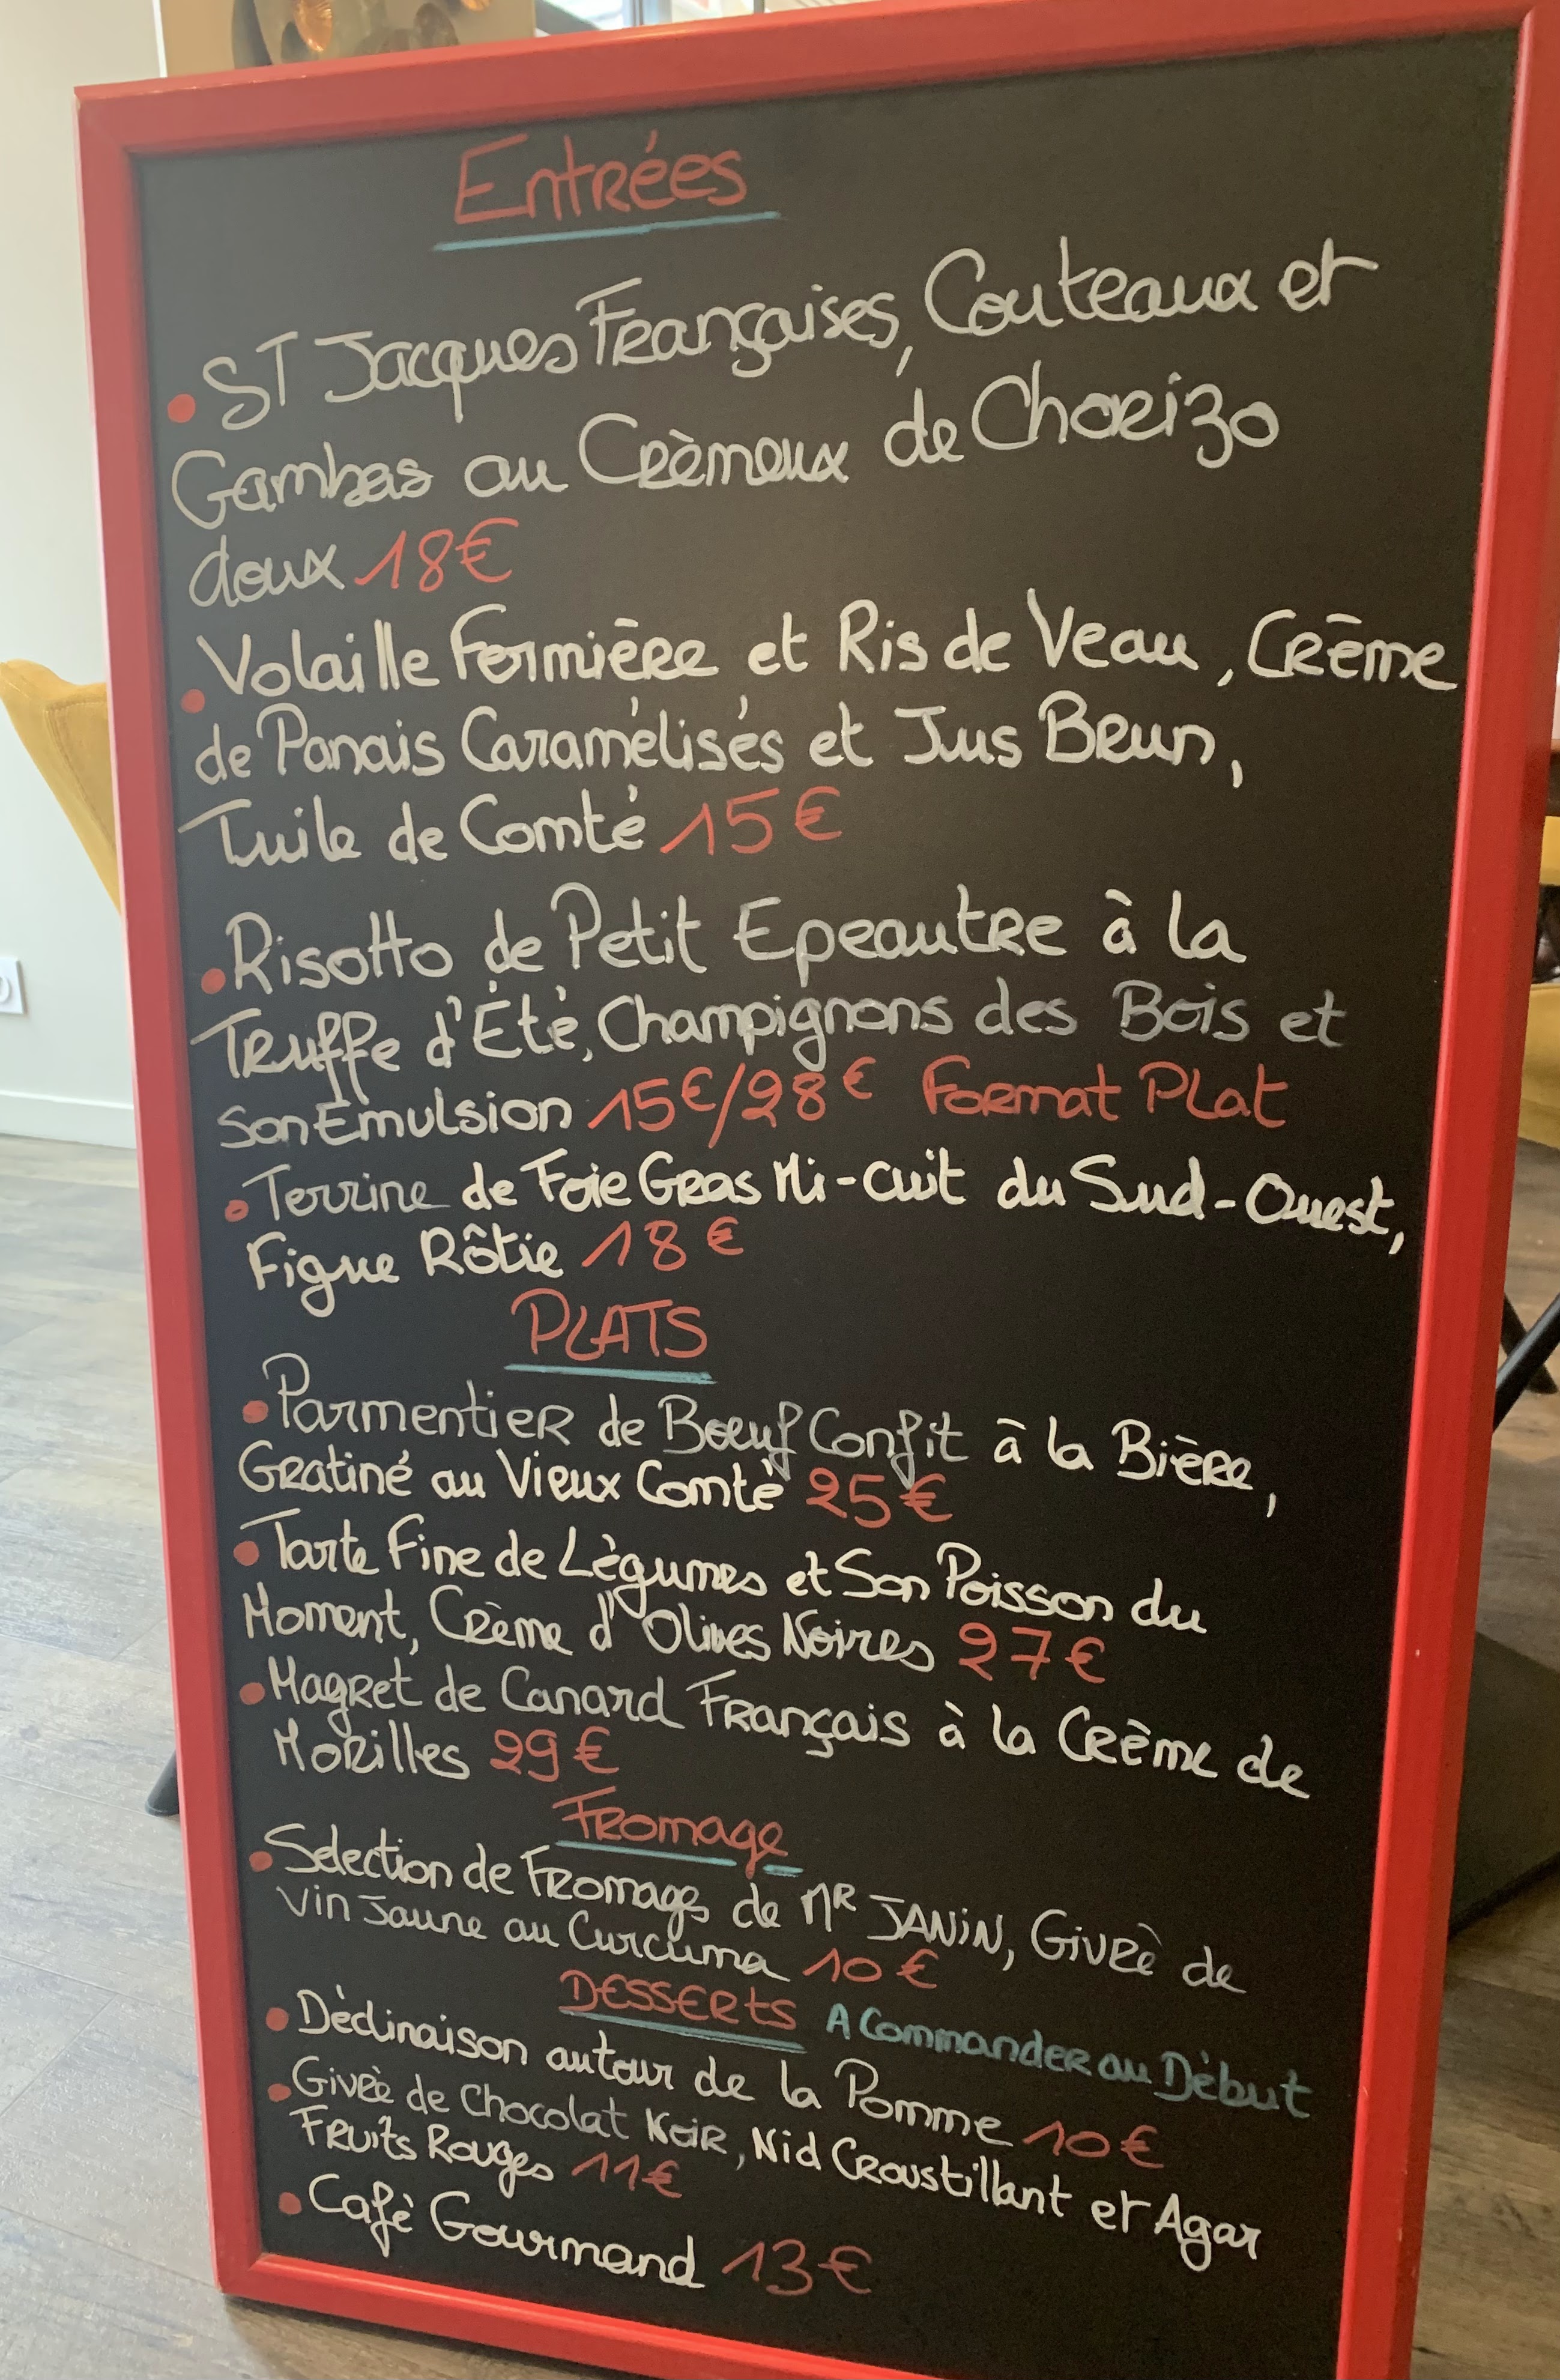 Entrées
• ST Jacques Françaises, Couteaux et
Gambas au Crèmeux de Chorizo
doux 18€
• Volaille Fermière et Ris de Veau, Crème
de Panais Caramélisés et Jus Brun,
Tuile de Comté 15€
• Risotto de Petit Epeautre à la
Truffe d'Été, Champignons des Bois et
Son Emulsion 15€/28€ Format Plat
• Terrine de Foie Gras Mi-cuit du Sud-Ouest,
Figue Rôtie 18€
PLATS
• Parmentier de Bœuf Confit à la Bière,
Gratiné au Vieux Comté 25€
• Tarte Fine de Lègumes et Son Poisson du
Moment, Crème d'Olives Noires 27€
• Magret de Canard Français à la Crème de
Morilles 29€
Fromage
• Selection de Fromages de MR JANiN, Givrè de
Vin Jaune au Curcuma 10€
DESSERtS A Commander au Dèbut
• Dèclinaison autour de la Pomme 10€
• Givrè de Chocolat Noir, Nid Croustillant et Agar
Fruits Rouges 11€
• Cafè Gourmand 13€